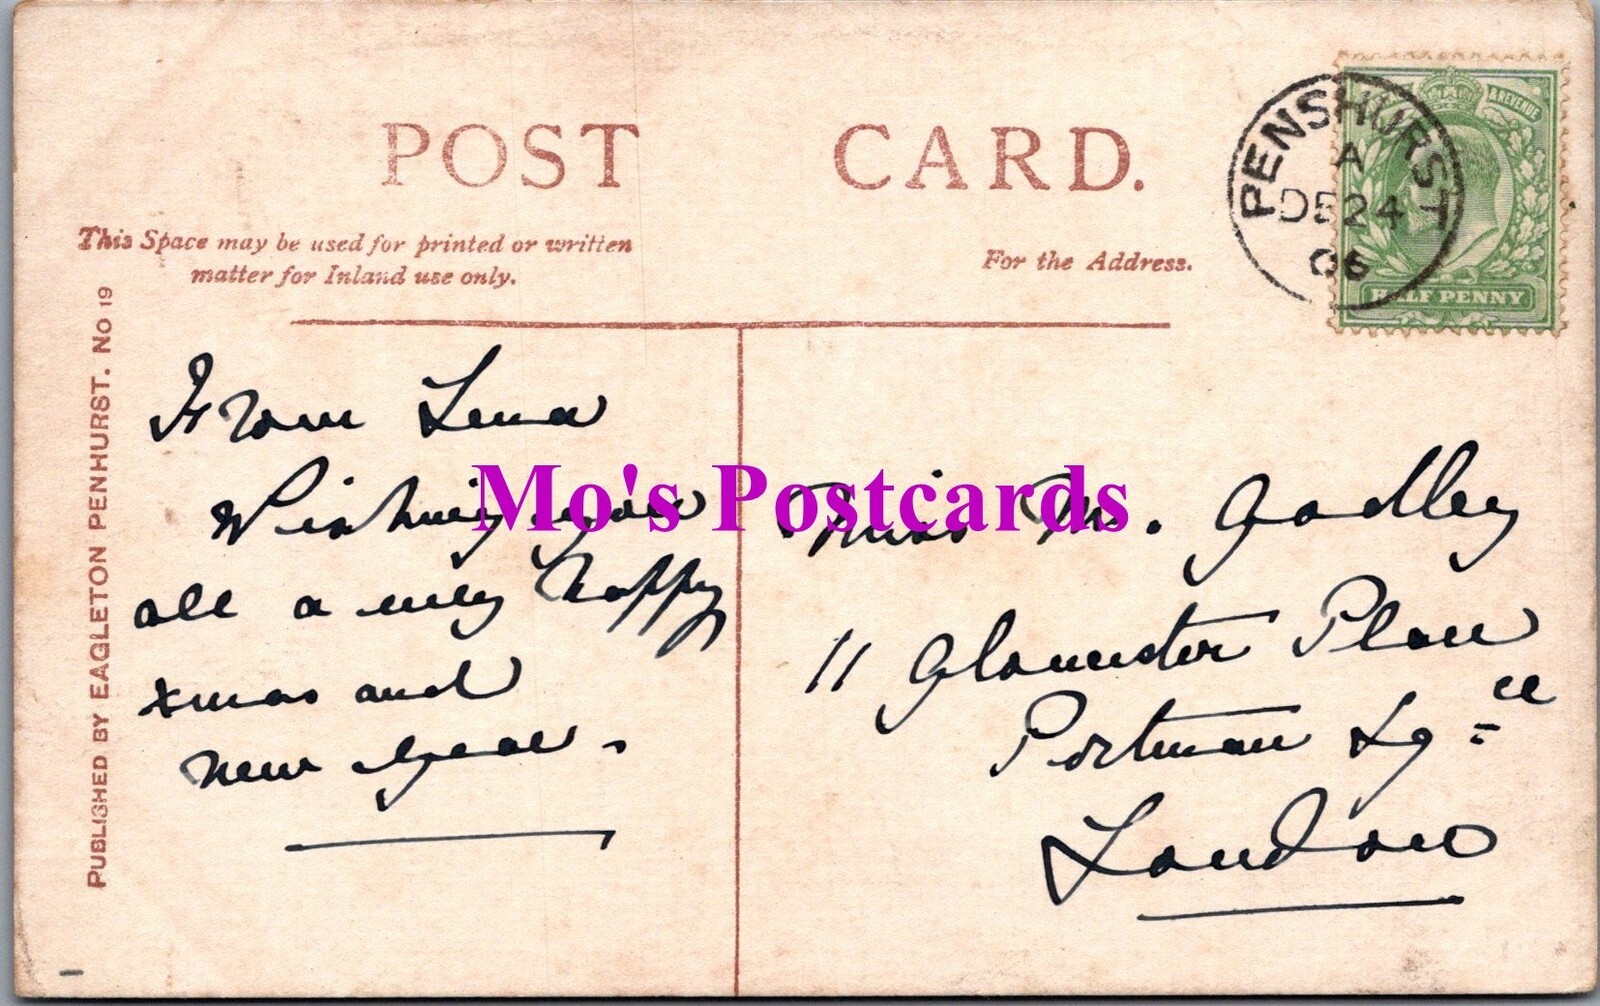 POST CARD.
This Space may be used for printed or written
matter for Inland use only.
For the Address.
PUBLISHED BY EAGLETON PENHURST. No 19
PENSHURST
A
DE 24
06
& REVENUE
HALF PENNY
From Lena
Wishing you
all a very happy
xmas and
New Year.
Miss M. Godley
11 Gloucester Place
Portman Sq re
London
Mo's Postcards